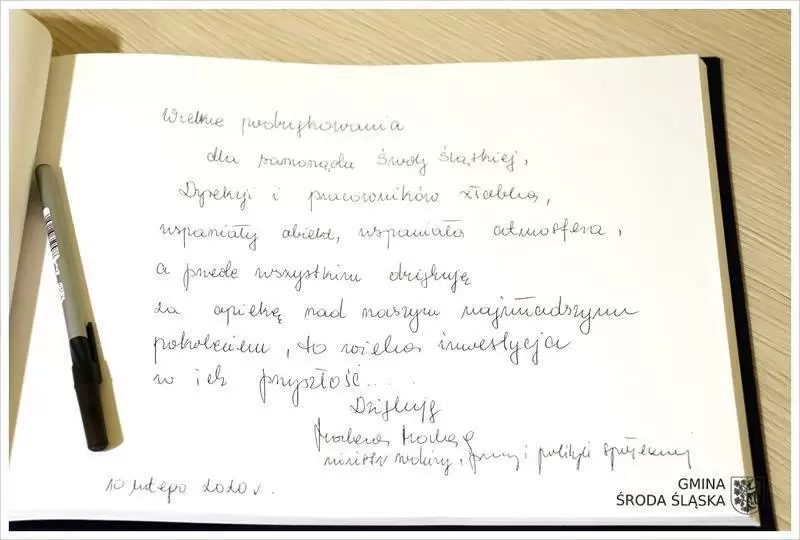 Wielkie podziękowania
dla samorządu Środy Śląskiej,
Dyrekcji i pracowników żłobka,
wspaniały obiekt, wspaniała atmosfera,
a przede wszystkim dziękuję
za opiekę nad naszym najmłodszym
pokoleniem, to wielka inwestycja
w ich przyszłość....
Dziękuję
minister rodziny, pracy i polityki społecznej
10 lutego 2020 r.
GMINA
ŚRODA ŚLĄSKA